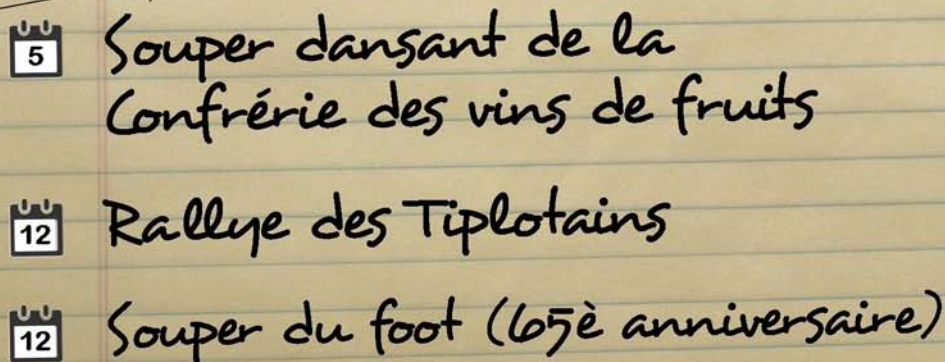 5 Souper dansant de la
Confrérie des vins de fruits
12 Rallye des Tiplotains
12 Souper du foot (65è anniversaire)